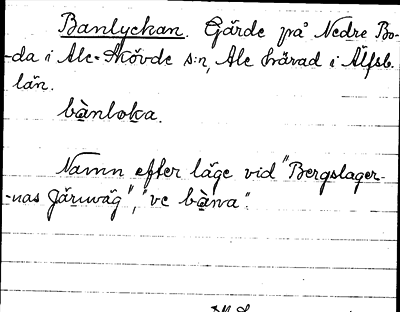 Banlyckan. Gärde på Nedre Bo-
-da i Ale-Skövde s:n, Ale härad i Älfsb.
län.
bànloka.
Namn efter läge vid "Bergslager-
-nas Järnväg", "ve bàna".